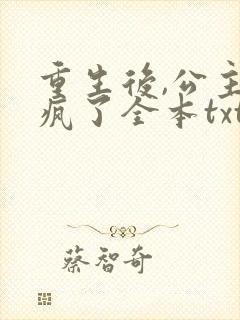 重生後,公主
瘋了全本txt
蔡智奇